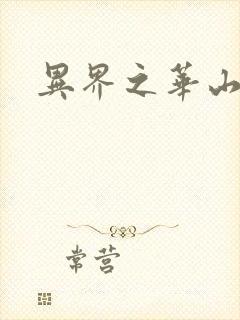 異界之華山
常营